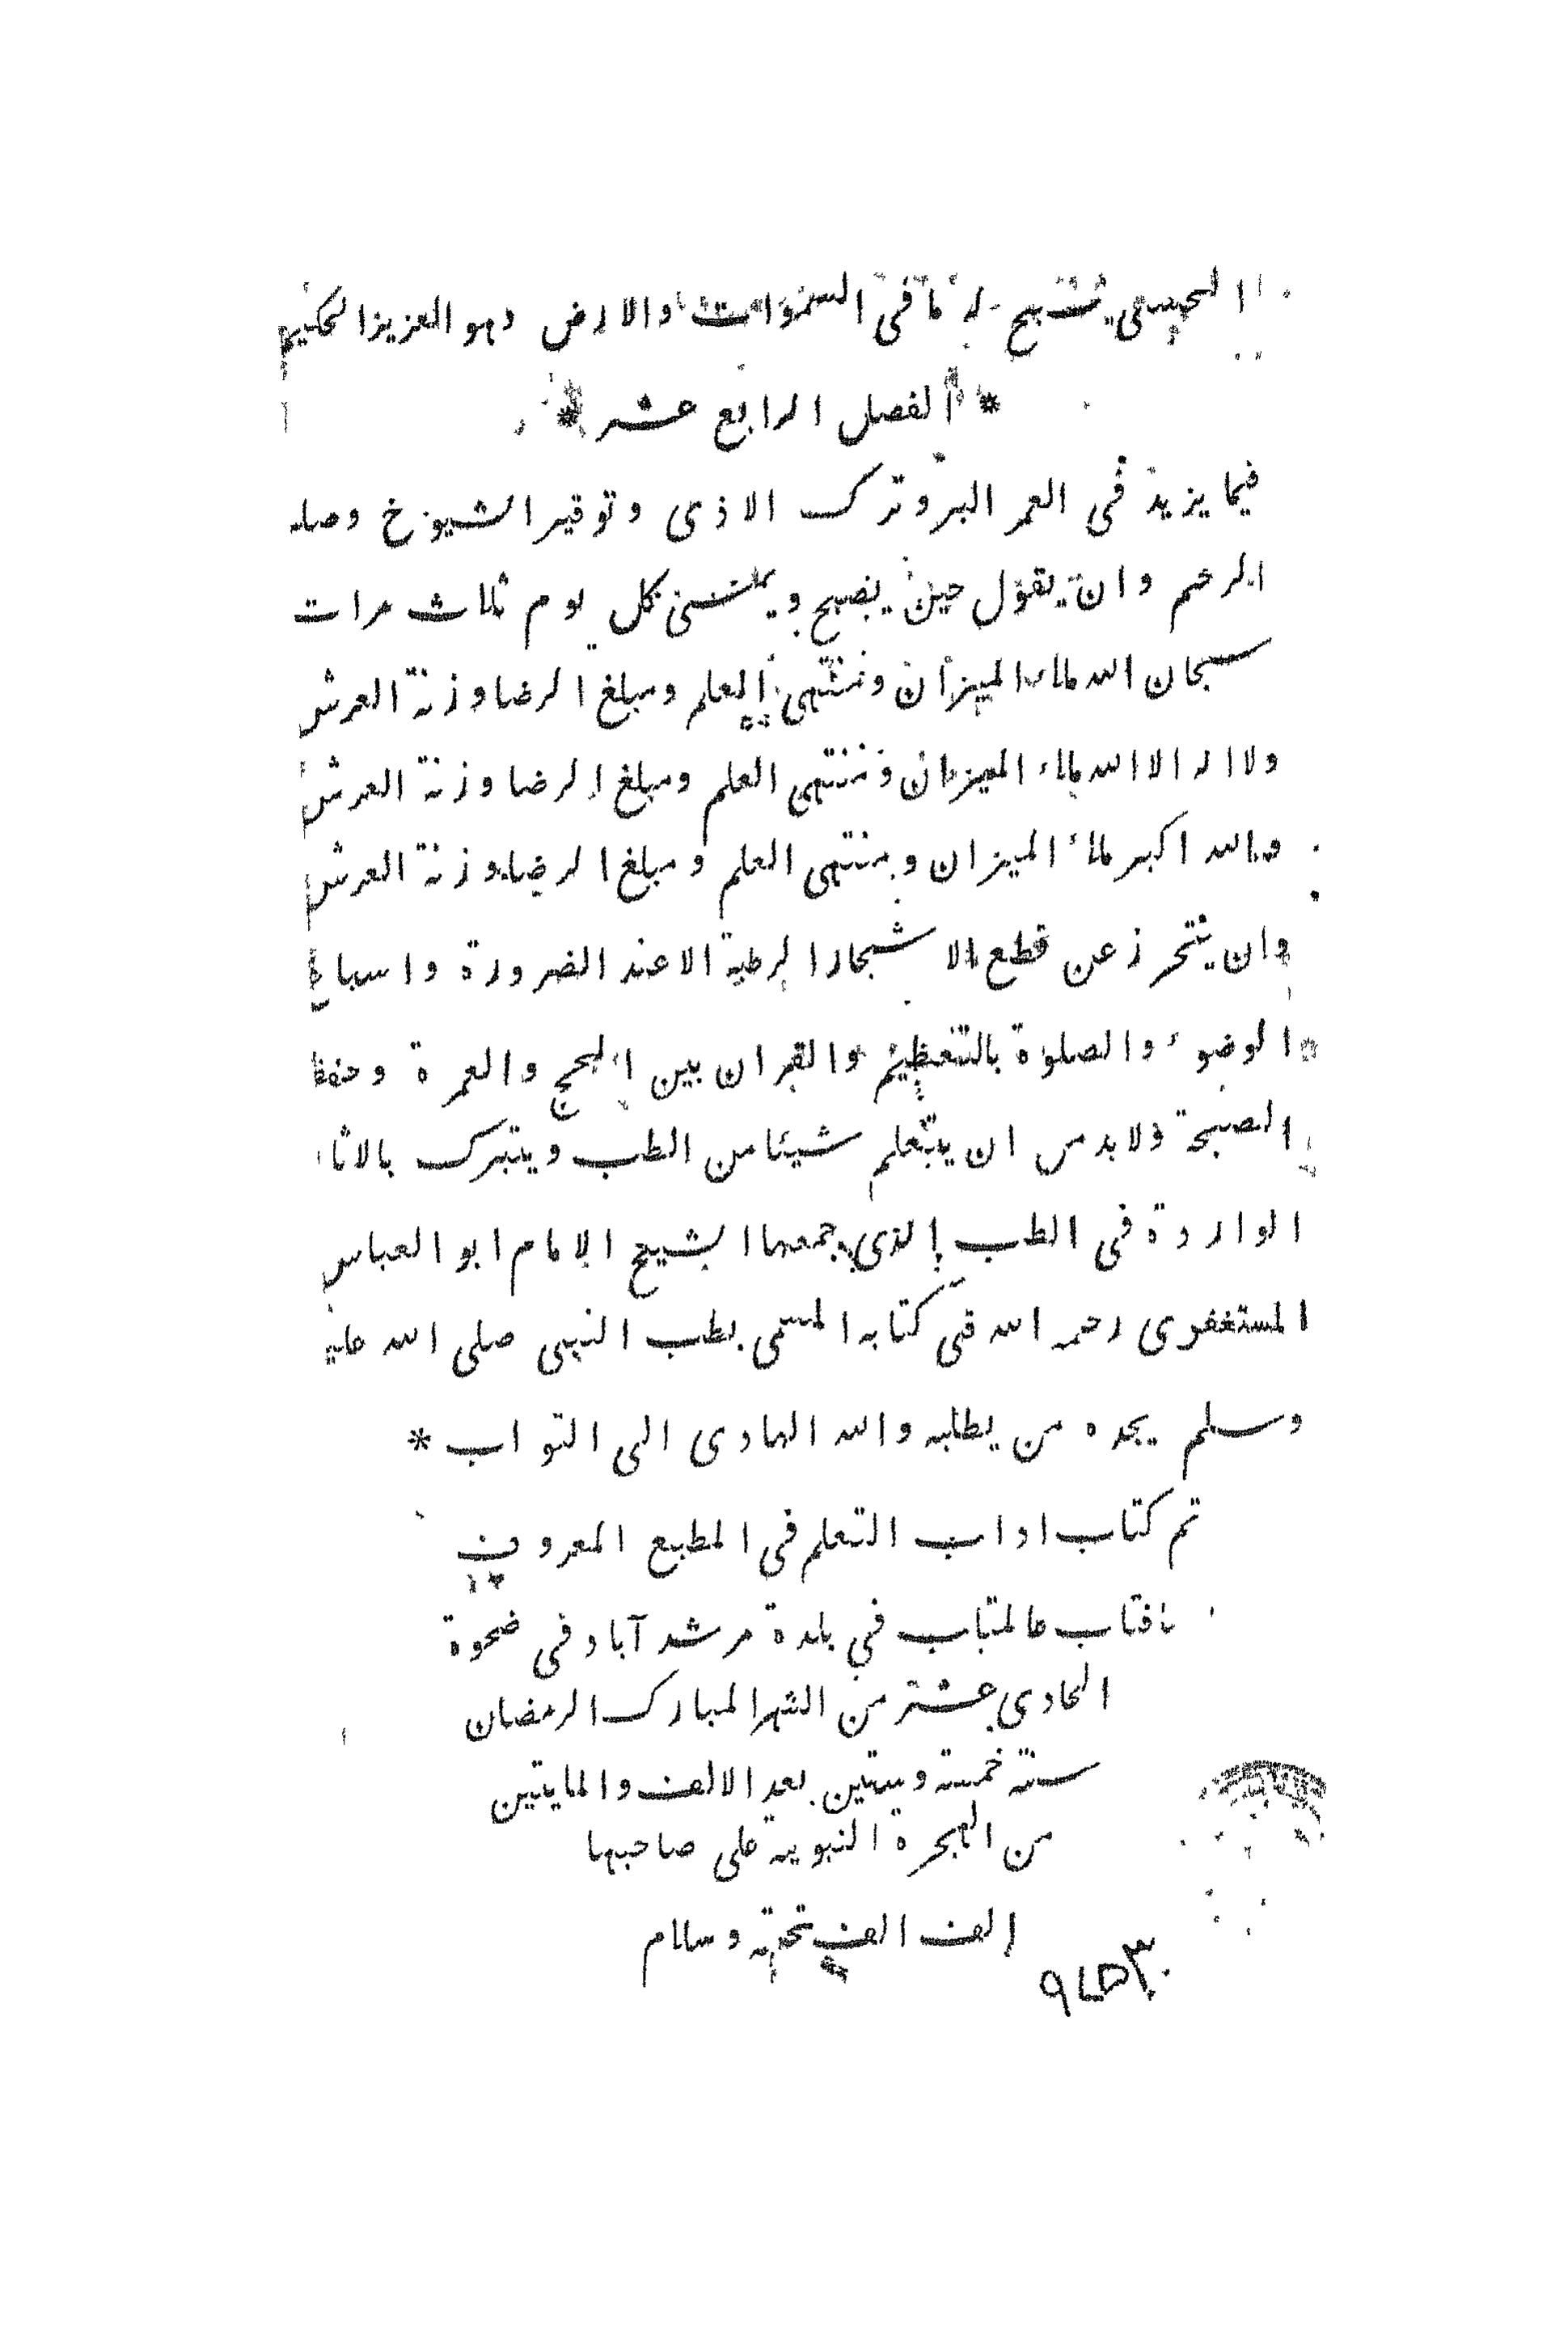 الحسنى يسبح له ما فى السموات والارض وهو العزيز الحكيم
* الفصل الرابع عشر *
فيما يزيد فى العمر البر وترك الاذى وتوقير الشيوخ وصلة
الرحم وان يقول حين يصبح ويمسى كل يوم ثلاث مرات
سبحان الله ملاء الميزان ومنتهى العلم ومبلغ الرضا وزنة العرش
ولا اله الا الله ملاء الميزان ومنتهى العلم ومبلغ الرضا وزنة العرش
والله اكبر ملاء الميزان ومنتهى العلم ومبلغ الرضا وزنة العرش
وان يتحرز عن قطع الاشجار الرطبة الا عند الضرورة واسباغ
الوضوء والصلوة بالتعظيم والقران بين الحج والعمرة وحفظ
الصحة ولا بد من ان يتعلم شيئا من الطب ويتبرك بالاثا
الواردة فى الطب الذي جمعها الشيخ الامام ابو العباس
المستغفرى رحمه الله فى كتابه المسمى بطب النبى صلى الله عليه
وسلم يجده من يطلبه والله الهادى الى التواب *
تم كتاب اداب التعلم فى المطبع المعروف
بافتاب عالمتاب في بلدة مرشد آباد فى ضحوة
الحادى عشر من الشهر المبارك الرمضان
سنة خمسة وستين بعد الالف والمايتين
من الهجرة النبوية على صاحبها
الف الف تحية وسلام